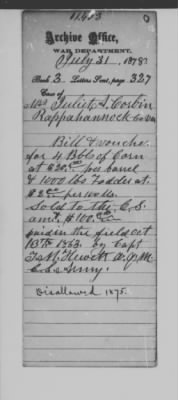 Archive Office,
WAR DEPARTMENT,
July 31, 1878
Book 3 Letters Sent, page 327
Case of
Mrs Juliet S. Corbin
Rappahannock Co Va
Bill & vouche
for 4 Bbls of Corn
at $20.00 per barrel
& 1000 lbs Fodder at
$2.00 per
Sold to the C.S.
amt. $100.00
paid in the field Oct
13th 1863, by Capt
Hewett A.Q.M.
C.S. Army.
Disallowed 1875.